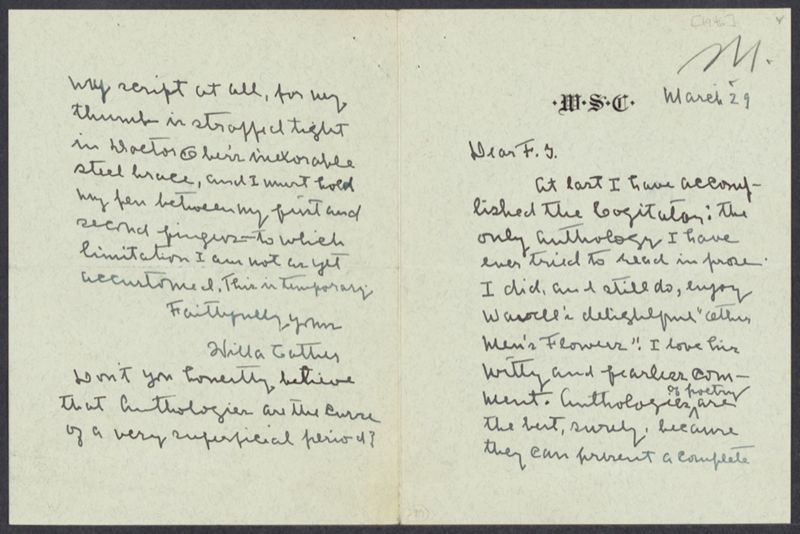 M.
·W·S·C·
March 29
Dear F. G.
At last I have accomp-
lished the Cogitator: the
only anthology I have
ever tried to read in prose.
I did, and still do, enjoy
Wavell's delightful "Other
Men's Flowers". I love his
witty and fearless com-
ment. Anthologies of poetry are
the best, surely, because
they can present a complete
my script at all, for my
thumb is strapped tight
in Doctor Ober's inexorable
steel brace, and I must hold
my pen between my first and
second fingers—to which
limitation I am not as yet
accustomed. This is temporary.
Faithfully yours
Willa Cather
Don't you honestly believe
that Anthologies are the curse
of a very superficial period?